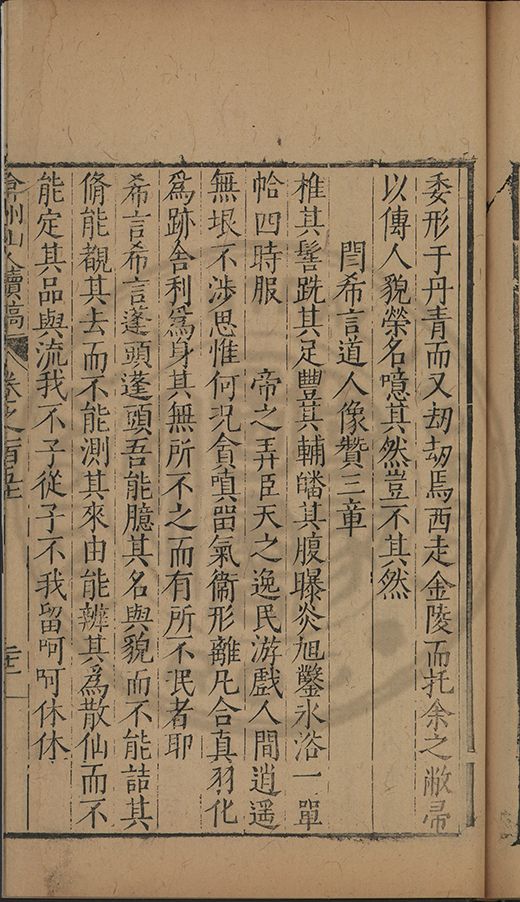 委形于丹青而又刧刧焉西走金陵而托余之敝帚
以傳人貌榮名噫其然豈不其然
閆希言道人像贊三章
椎其髻跣其足豐其輔皤其腹曝炎旭鑿氷浴一單
帢四時服 帝之弄臣天之逸民游戲人間逍遥
無垠不渉思惟何况貪嗔留氣衞形離凡合真羽化
爲跡舍利爲身其無所不之而有所不泯者耶
希言希言蓬頭蓬頭吾能臆其名與貌而不能詰其
脩能覩其去而不能測其来由能辨其爲散仙而不
能定其品與流我不子從子不我留呵呵休休
弇州山人續稿 卷之一百五十